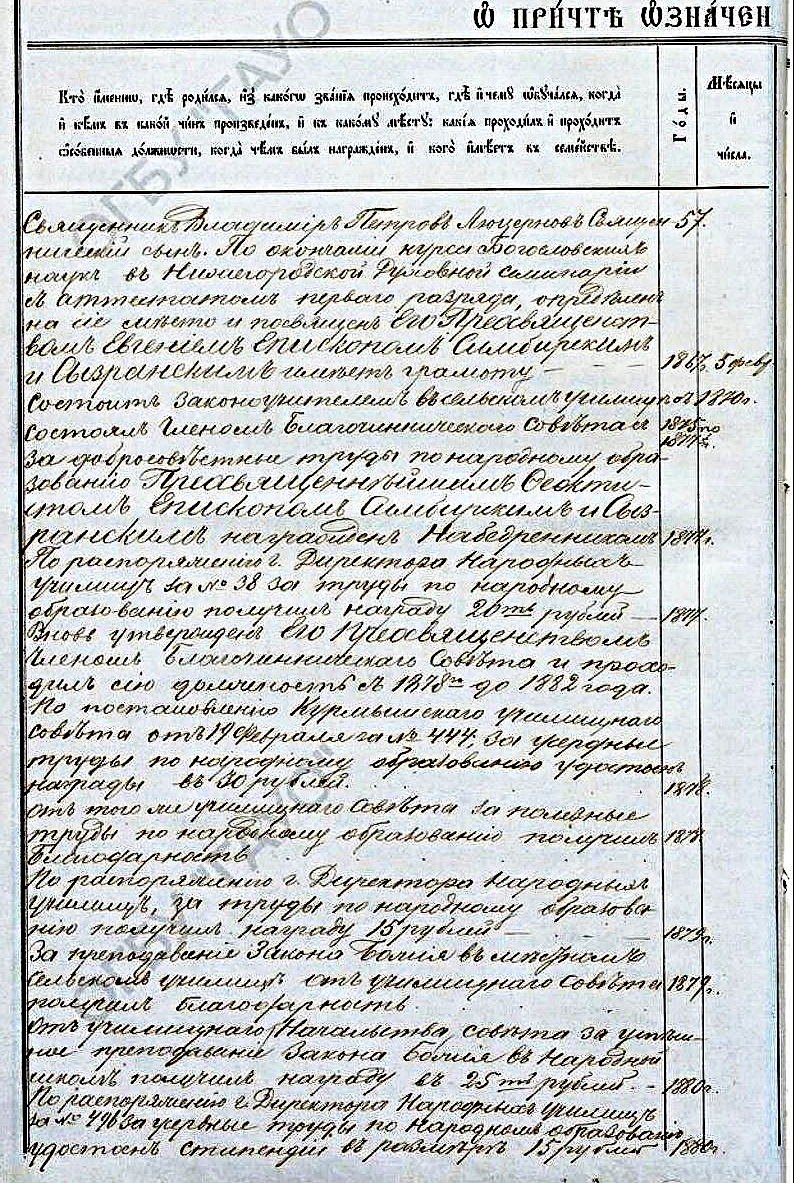 Ѡ ПРИ́ЧТѢ Ѡ҆ЗНА́ЧЕН
Кто̀ и҆́менно, гдѣ̀ роди́лся, и҆з̾ како́гѡ зва́нїя происхо́дитъ, гдѣ̀ и҆ чему̀ ѡ҆буча́лся, когда̀
и҆ кѣ́мъ въ како́й чи́нъ произведе́нъ, и҆ къ како́му мѣ́сту: какі́я проходи́лъ и҆ прохо́дитъ
ѻ҆со́бенныя до́лжности, когда̀ чѣ́мъ бы́лъ награжде́нъ, и҆ кого̀ и҆мѣ́етъ въ семе́йствѣ.
Го́ды.
Мѣ́сяцы
и҆
чи́сла.
Священникъ Владиміръ Петровъ Люцерновъ Священ 57.
нический сынъ. По окончаніи курса Богословскихъ
наукъ въ Нижегородской Духовной семинаріи
съ аттестатомъ перваго разряда, опредѣленъ
на сіе мѣсто и посвященъ Его Преосвященст-
вомъ Евгеніемъ Епископомъ Симбирскимъ
и Сызранскимъ имѣетъ грамоту 1867г. 5 февр
состоитъ Законоучителемъ въ сельскомъ училищѣ съ 1870г.
состоялъ Членомъ Благочинническаго Совѣта съ 1875 по
1877 г.
за добросовѣстные труды по народному обра-
зованію Преосвященнѣйшимъ Ѳеокти-
стомъ Епископомъ Симбирскимъ и Сыз-
ранскимъ награжденъ Набедренникомъ 1877г.
По распоряженію г. Директора Народныхъ
училищъ за № 38 за труды по народному
образованію получилъ награду 20ть рублей 1877.
Вновь утвержденъ Его Преосвященствомъ
Членомъ Благочинническаго Совѣта и прохо-
дилъ сію должность съ 1878го до 1882 года.
По постановленію Курмышскаго училищнаго
совѣта отъ 19 февраля за № 444, за усердные
труды по народному образованію удостоенъ
награды въ 30 рублей. 1878.
отъ того же училищнаго Совѣта за полезные
труды по народному образованію получилъ 1878
Благодарность
По распоряженію г. Директора Народныхъ
училищъ, за труды по народному образова
нію получилъ награду 15 рублей 1879г.
За преподаваніе Закона Божія въ мѣстномъ
сельскомъ училищѣ отъ училищнаго Совѣта 1879г.
получилъ благодарность.
отъ училищнаго Начальства, совѣта за успѣш-
ное преподаваніе Закона Божія въ Народной
школѣ получилъ награду въ 25ть рублей 1880г.
По распоряженію г. Директора Народныхъ училищъ
за № 496 за усердные труды по Народному образованію
удостоенъ стипендіи въ размѣрѣ 15 рублей 1880г.
ОГБУ "ГАУО"
ОГБУ "ГАУО"